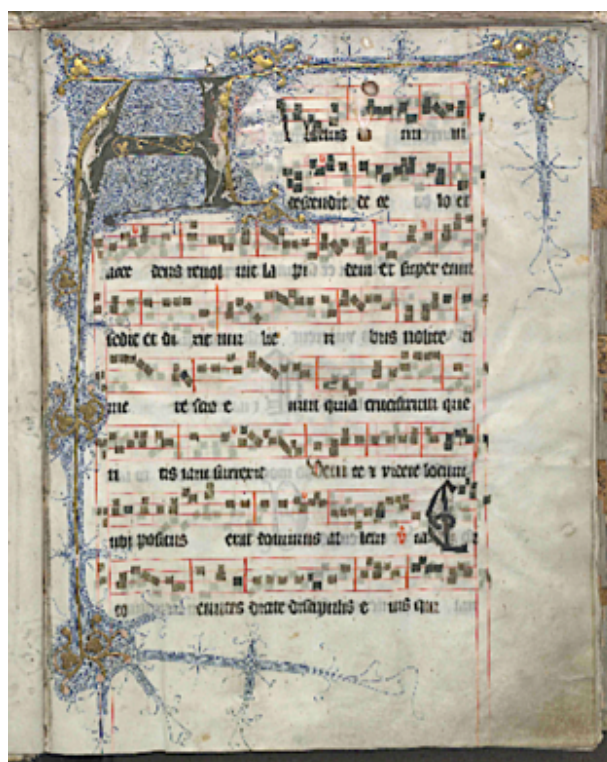 escendit de ce lo et
acce dens revol vit la pi dem et super eum
sedit et di xit mu lie ri bus nolite ti
me re scio e nim quia crucifixum que
ri tis iam surrexit Veni te et videte locum
ubi positus erat dominus al lelu ia
euntes dicite discipulis e ius quia